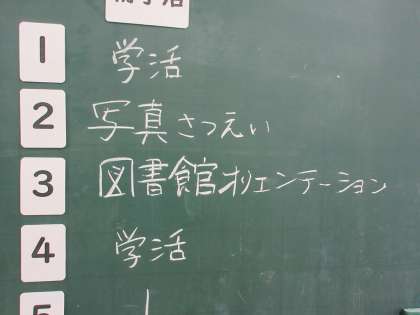 1 学活
2 写真さつえい
3 図書館オリエンテーション
4 学活
5